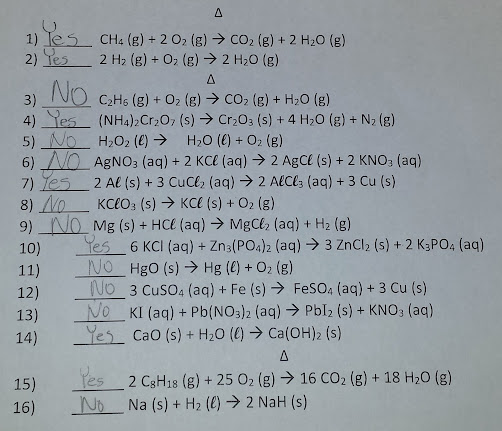 Δ
1) Yes CH₄ (g) + 2 O₂ (g) → CO₂ (g) + 2 H₂O (g)
2) Yes 2 H₂ (g) + O₂ (g) → 2 H₂O (g)
Δ
3) NO C₂H₆ (g) + O₂ (g) → CO₂ (g) + H₂O (g)
4) Yes (NH₄)₂Cr₂O₇ (s) → Cr₂O₃ (s) + 4 H₂O (g) + N₂ (g)
5) No H₂O₂ (ℓ) → H₂O (ℓ) + O₂ (g)
6) NO AgNO₃ (aq) + 2 KCℓ (aq) → 2 AgCℓ (s) + 2 KNO₃ (aq)
7) Yes 2 Aℓ (s) + 3 CuCℓ₂ (aq) → 2 AℓCℓ₃ (aq) + 3 Cu (s)
8) No KCℓO₃ (s) → KCℓ (s) + O₂ (g)
9) NO Mg (s) + HCℓ (aq) → MgCℓ₂ (aq) + H₂ (g)
10) Yes 6 KCl (aq) + Zn₃(PO₄)₂ (aq) → 3 ZnCl₂ (s) + 2 K₃PO₄ (aq)
11) NO HgO (s) → Hg (ℓ) + O₂ (g)
12) NO 3 CuSO₄ (aq) + Fe (s) → FeSO₄ (aq) + 3 Cu (s)
13) No KI (aq) + Pb(NO₃)₂ (aq) → PbI₂ (s) + KNO₃ (aq)
14) Yes CaO (s) + H₂O (ℓ) → Ca(OH)₂ (s)
Δ
15) Yes 2 C₈H₁₈ (g) + 25 O₂ (g) → 16 CO₂ (g) + 18 H₂O (g)
16) No Na (s) + H₂ (ℓ) → 2 NaH (s)